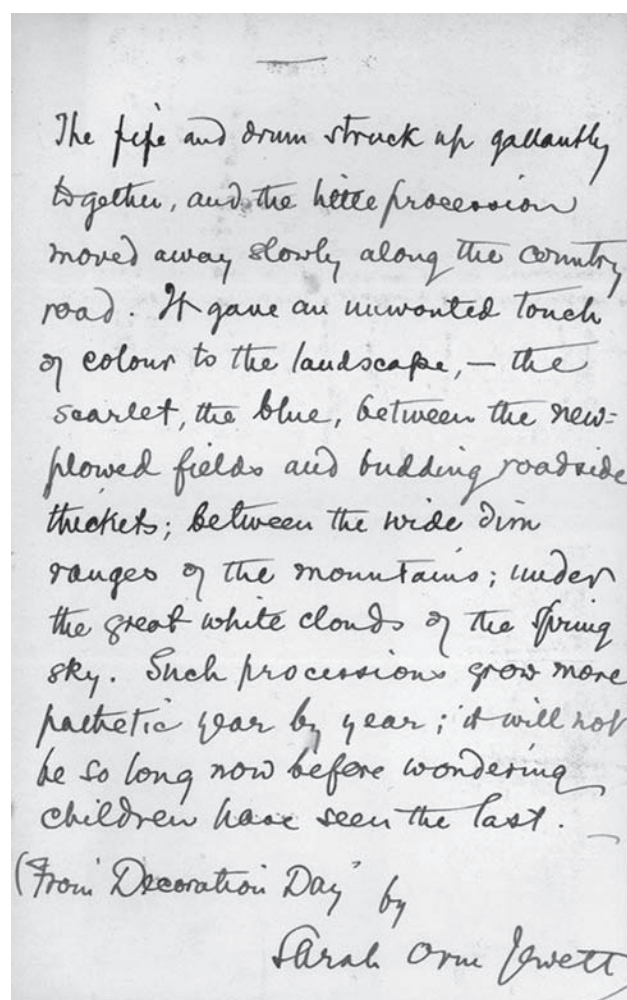 The fife and drum struck up gallantly
together, and the little procession
moved away slowly along the country
road. It gave an unwonted touch
of colour to the landscape, — the
scarlet, the blue, between the new=
plowed fields and budding roadside
thickets; between the wide dim
ranges of the mountains; under
the great white clouds of the spring
sky. Such processions grow more
pathetic year by year; it will not
be so long now before wondering
children have seen the last.
(From "Decoration Day" by
Sarah Orne Jewett